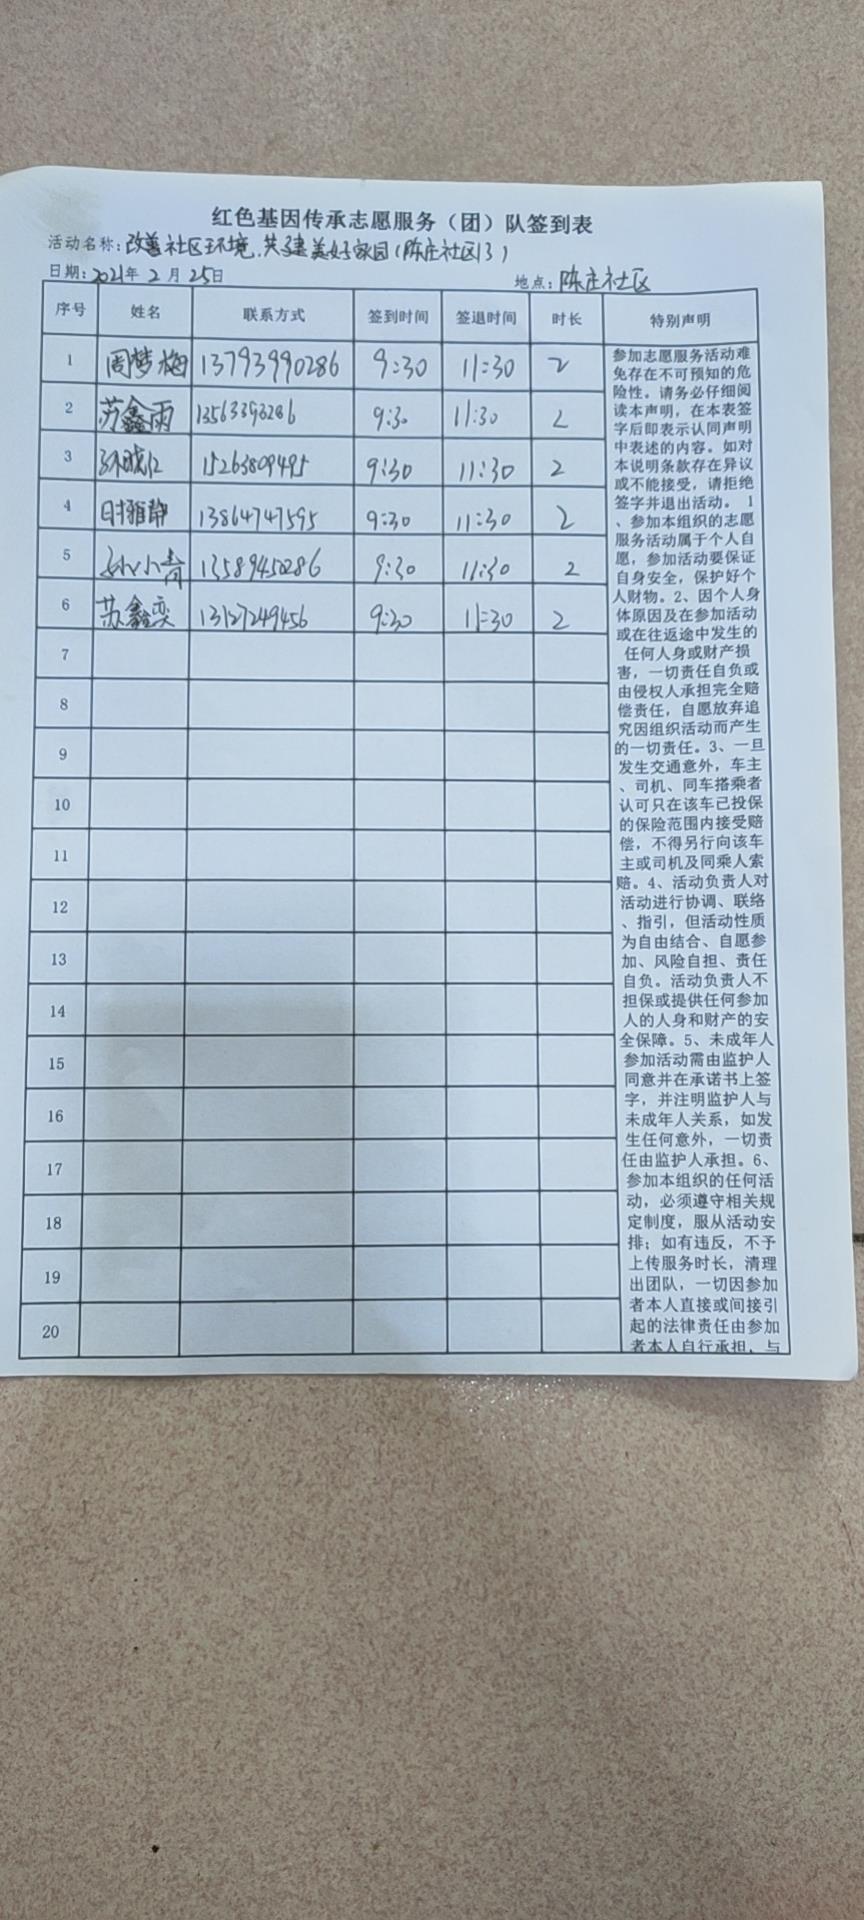 红色基因传承志愿服务（团）队签到表
活动名称：改善社区环境，共建美好家园（陈庄社区13）
日期：2021年2月25日 地点：陈庄社区
序号 姓名 联系方式 签到时间 签退时间 时长 特别声明
1 周梦梅 13793990286 9:30 11:30 2
2 苏鑫雨 9:30 11:30 2
3 15263809495 9:30 11:30 2
4 时雅静 13864747595 9:30 11:30 2
5 孙小青 13589450286 9:30 11:30 2
6 苏鑫奕 13127249456 9:30 11:30 2
7
8
9
10
11
12
13
14
15
16
17
18
19
20
参加志愿服务活动难
免存在不可预知的危
险性。请务必仔细阅
读本声明，在本表签
字后即表示认同声明
中表述的内容。如对
本说明条款存在异议
或不能接受，请拒绝
签字并退出活动。 1
、参加本组织的志愿
服务活动属于个人自
愿，参加活动要保证
自身安全，保护好个
人财物。2、因个人身
体原因及在参加活动
或在往返途中发生的
任何人身或财产损
害，一切责任自负或
由侵权人承担完全赔
偿责任，自愿放弃追
究因组织活动而产生
的一切责任。3、一旦
发生交通意外，车主
、司机、同车搭乘者
认可只在该车已投保
的保险范围内接受赔
偿，不得另行向该车
主或司机及同乘人索
赔。4、活动负责人对
活动进行协调、联络
、指引，但活动性质
为自由结合、自愿参
加、风险自担、责任
自负。活动负责人不
担保或提供任何参加
人的人身和财产的安
全保障。5、未成年人
参加活动需由监护人
同意并在承诺书上签
字，并注明监护人与
未成年人关系，如发
生任何意外，一切责
任由监护人承担。6、
参加本组织的任何活
动，必须遵守相关规
定制度，服从活动安
排；如有违反，不予
上传服务时长，清理
出团队，一切因参加
者本人直接或间接引
起的法律责任由参加
者本人自行承担，与